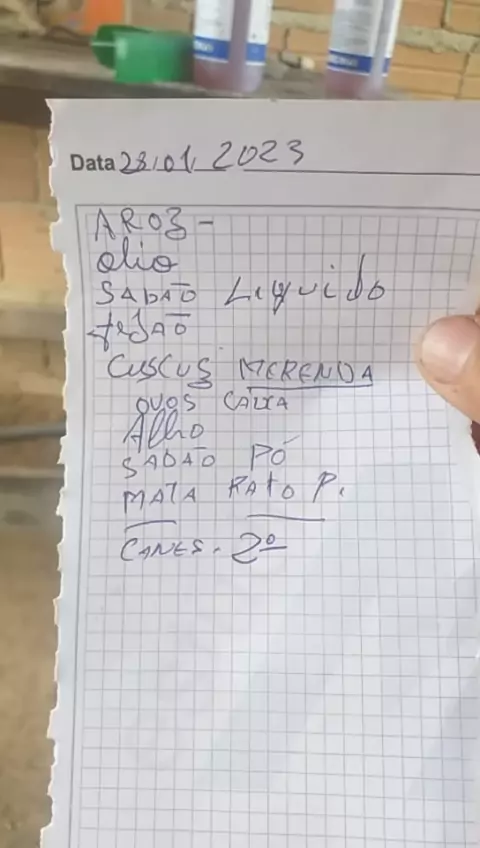 Data 28.01.2023
AROZ -
olio
SABAO LIQUIDO
FEJAO
CUSCUS MERENDA
OVOS CAIXA
Alho
SABAO PÓ
MATA RATO P.
CANES. 2º